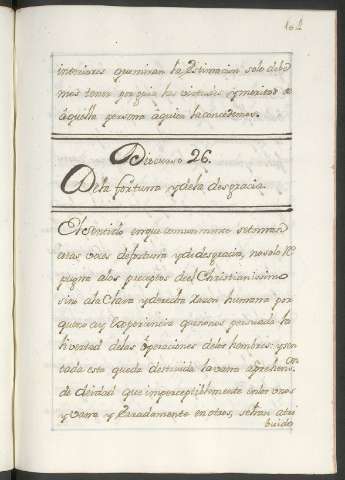 interiores que miran la Estimacion solo debe
mos tener por guia las virtudes y meritos de
aquella persona à quien la concedemos.
Discurso 26.
De la fortuna y de la desgracia.
El sentido en que comunmente se toman
estas voces de fortuna y de desgracia, no solo re
pugna a los preceptos del Christianissimo
sino a la Clara y derecha razon humana por
que no ay Experiencia que no nos persuada la
livertad de las operaciones de los hombres: y sen
tada esta queda destruida la vana aprehens.on
de deidad que imperceptiblemente en los unos
y vana y Erradamente en otros, se han atri
buido